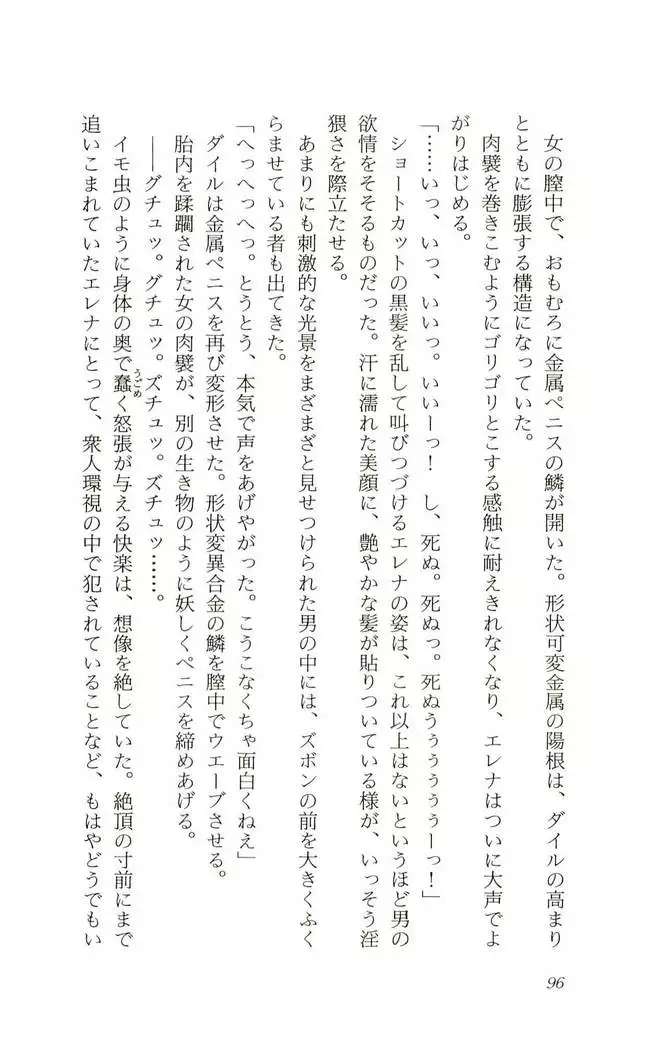 女の膣中で、おもむろに金属ペニスの鱗が開いた。形状可変金属の陽根は、ダイルの高まり
とともに膨張する構造になっていた。
肉襞を巻きこむようにゴリゴリとこする感触に耐えきれなくなり、エレナはついに大声でよ
がりはじめる。
「……いっ、いっ、いいっ。いいーっ！　し、死ぬ。死ぬっ。死ぬうぅぅぅぅーっ！」
ショートカットの黒髪を乱して叫びつづけるエレナの姿は、これ以上はないというほど男の
欲情をそそるものだった。汗に濡れた美顔に、艶やかな髪が貼りついている様が、いっそう淫
猥さを際立たせる。
あまりにも刺激的な光景をまざまざと見せつけられた男の中には、ズボンの前を大きくふく
らませている者も出てきた。
「へっへっへっ。とうとう、本気で声をあげやがった。こうこなくちゃ面白くねえ」
ダイルは金属ペニスを再び変形させた。形状変異合金の鱗を膣中でウエーブさせる。
胎内を蹂躙された女の肉襞が、別の生き物のように妖しくペニスを締めあげる。
――グチュッ。グチュッ。ズチュッ。ズチュッ……。
イモ虫のように身体の奥で蠢く怒張が与える快楽は、想像を絶していた。絶頂の寸前にまで
うごめ
追いこまれていたエレナにとって、衆人環視の中で犯されていることなど、もはやどうでもい
96